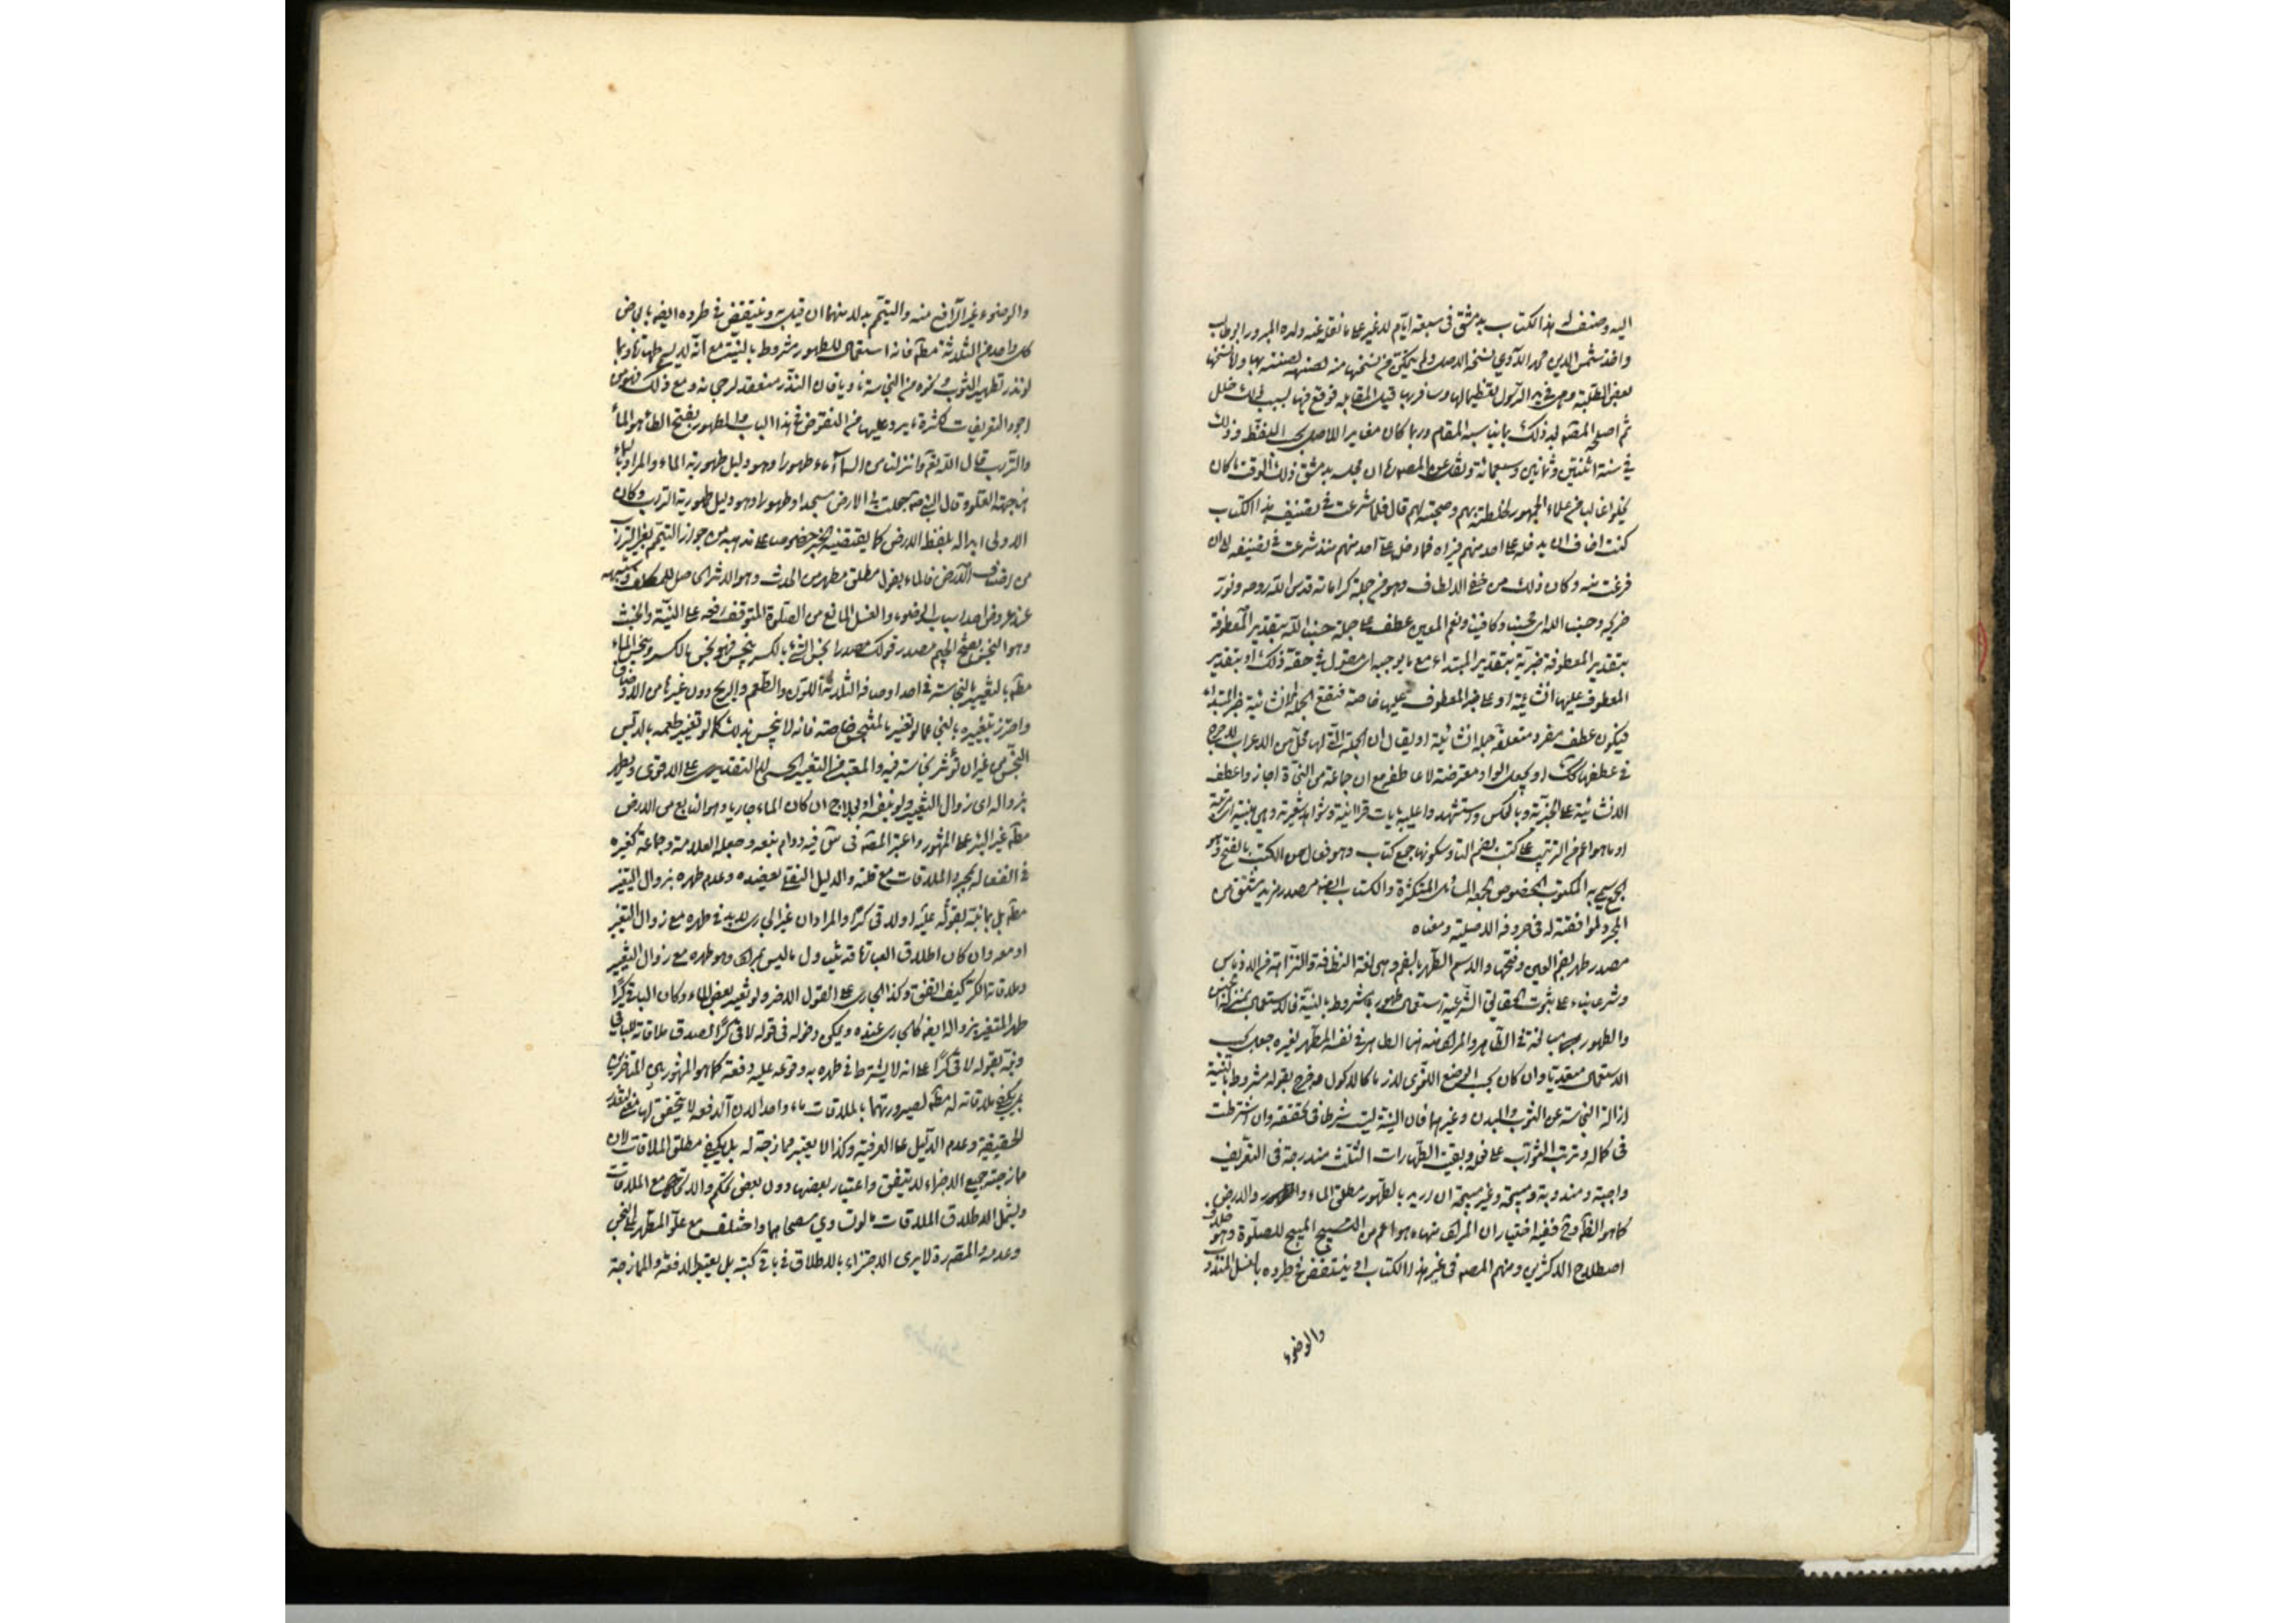 اليه وصنف له هذا الكتاب بدمشق فى سبعة ايام لا غير على ما نقله عنه ولده المبرور ابو طالب
واخذ شمس الدين محمد الآوي نسخة الاصل ولم يتمكن من نسخها منه لضنته بها وانما نسخها
بعض الطلبة وهى فى يد الرسول تعظيما لها وسافر بها قبل المقابلة فوقع فيها بسبب ذلك خلل
ثم اصلحه المصنف بعد ذلك بما يناسب المقام وربما كان مغايرا للاصل بحسب اللفظ وذلك
فى سنة اثنتين وثمانين وسبعمائة ونقل عن المصنف ان مجلسه بدمشق ذلك الوقت ما كان
يخلو غالبا من علماء الجمهور لخلطته بهم وصحبته لهم قال فلما شرعت فى تصنيف هذا الكتاب
كنت اخاف ان يدخل على احد منهم فيراه فما دخل على احد منهم منذ شرعت فى تصنيفه الى ان
فرغت منه وكان ذلك من خفى الالطاف وهو من جملة كراماته قدس الله روحه ونور
ضريحه وحسبنا الله اى محسبنا وكافينا ونعم المعين عطف على جملة حسبنا الله بتقدير المعطوفة
بتقدير المعطوفة خبرية بتقدير المبتداء مع ما يوجبه اى مقول فى حقه ذلك او بتقدير
المعطوف عليها انشائية او على خبر المعطوف عليها خاصة فتقع الجملة الانشائية خبر المبتداء
فيكون عطف مفرد متعلقه جملة انشائية او يقال ان الجملة التى لها محل من الاعراب لا حرج
فى عطفها كذلك او يجعل الواو معترضة لا عاطفة مع ان جماعة من النحاة اجازوا عطف
الانشائية على الخبرية وبالعكس واستشهدوا عليه بآيات قرآنية وشواهد شعرية وهى مبنية اى مرتبة
او ما هو اعم من الترتيب على كتب بضم التاء وسكونها جمع كتاب وهو فعال من الكتب بالفتح وهو
الجمع سمى به المكتوب المخصوص لجمعه المسائل المتكثرة والكتاب ايضا مصدر مزيد مشتق من
المجرد لموافقته له فى حروفه الاصلية ومعناه
مصدر طهر بضم العين وفتحها والاسم الطهر بالضم وهى لغة النظافة والنزاهة من الادناس
وشرعا بناء على ثبوت الحقائق الشرعية استعمال طهور مشروط بالنية فالاستعمال بمنزلة الجنس
والطهور مبالغة فى الطاهر والمراد منه هنا الطاهر فى نفسه المطهر لغيره جعل بحسب
الاستعمال متعديا وان كان بحسب الوضع اللغوى لازما كالاكول وخرج بقوله مشروط بالنية
ازالة النجاسة عن الثوب والبدن وغيرهما فان النية ليست شرطا فى تحققه وان اشترطت
فى كماله وترتب الثواب على فعله وبقيت الطهارات الثلث مندرجة فى التعريف
واجبة ومندوبة ومبيحة وغير مبيحة ان اريد بالطهور مطلق الماء والارض
كما هو الظاهر وح ففيه اختيار ان المراد منها ما هو اعم من المبيح للصلوة وهو خلاف
اصطلاح الاكثرين ومنهم المصنف فى غير هذا الكتاب او ينتقض فى طرده بالغسل المندوب
والوضوء
والوضوء غير الرافع منه والتيمم بدلا منهما ان قيل به وينتقض فى طرده ايضا بابعاض
كل واحد من الثلاثة مطلقا فانه استعمال للطهور مشروط بالنية مع انه لا يسمى طهارة وبما
لو نذر تطهير الثوب ونحوه من النجاسة ناويا فان النذر منعقد لرجحانه ومع ذلك فهو من
اجود التعريفات لكثرة ما يرد عليها من النقوض فى هذا الباب والطهور بفتح الطاء هو الماء
والتراب قال الله تعالى وانزلنا من السماء ماء طهورا وهو دليل طهورية الماء والمراد بالسماء
هنا جهة العلو وقال النبى ص جعلت لى الارض مسجدا وطهورا وهو دليل طهورية التراب وكان
الاولى ابداله بلفظ الارض كما يقتضيه الخبر خصوصا على مذهبه من جواز التيمم بغير التراب
من اصناف الارض فالماء بقول مطلق مطهر من الحدث وهو الاثر الحاصل للمكلف وشبهه
عند عروض احد اسباب الوضوء والغسل المانع من الصلوة المتوقف رفعه على النية والخبث
وهو النجس بفتح الجيم مصدر قولك نجس الشئ بالكسر ينجس فهو نجس بالكسر وينجس الماء
مطلقا بالتغيير بالنجاسة فى احد اوصافه الثلاثة اللون والطعم والريح دون غيرها من الاوصاف
واحترز بتغيره بالنجاسة عما لو تغير بالمتنجس خاصة فانه لا ينجس بذلك كما لو تغير طعمه بالدبس
النجس من غير ان تؤثر نجاسته فيه والمعتبر من التغير الحسى لا التقديرى على الاقوى ويطهر
بزواله اى زوال التغير ولو بنفسه او بعلاج ان كان الماء جاريا وهو النابع من الارض
مطلقا غير البئر على المشهور واعتبر المصنف فى س فيه دوام نبعه وجعله العلامة وجماعة كغيره
فى انفعاله بمجرد الملاقات مع قلته والدليل النقلى يعضده وعدم طهره بزوال التغير
مطلقا بل بما نبه بقوله عليه او لاقى كرا والمراد ان غير الجارى لا بد فى طهره مع زوال التغير
او معه وان كان اطلاق العبارة قد يتناول ما ليس بمراد وهو طهره مع زوال التغير
وملاقاته الكر كيف اتفق وكذا الجارى على القول الاخر ولو تغير بعض الماء وكان الباقى كرا
طهر المتغير بزواله ايضا كالجارى عنده ويمكن دخوله فى قوله لاقى كرا لصدق ملاقاته للباقى
ونبه بقوله لاقى كرا على انه لا يشترط فى طهره به وقوعه عليه دفعة كما هو المشهور بين المتاخرين
بل يكفى ملاقاته له مطلقا لصيرورتهما بالملاقات ماء واحدا لان الدفعة لا يتحقق لها معنى لتعذر
الحقيقية وعدم الدليل على العرفية وكذا لا يعتبر ممازجته له بل يكفى مطلق الملاقات لان
ممازجة جميع الاجزاء لا يتفق واعتبار بعضها دون بعض تحكم والاتحاد مع الملاقات
ويشمل الاطلاق الملاقات ما لو تساوى سطحاهما واختلف مع علو المطهر على النجس
وعدمه والمصنف ره لا يرى الاجتزاء بالاطلاق فى باقى كتبه بل يعتبر الدفعة والممازجة